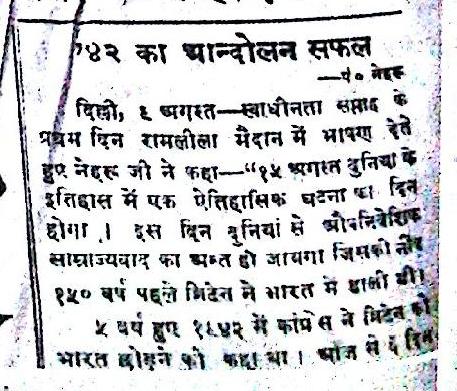 '४२ का आन्दोलन सफल
—पं० नेहरू
दिल्ली, ६ अगस्त—स्वाधीनता सप्ताह के
प्रथम दिन रामलीला मैदान में भाषण देते
हुए नेहरू जी ने कहा—“१५ अगस्त दुनियां के
इतिहास में एक ऐतिहासिक घटना का दिन
होगा । इस दिन दुनियां से औपनिवेशिक
साम्राज्यवाद का अन्त हो जायगा जिसकी नींव
१५० वर्ष पहले ब्रिटेन ने भारत में डाली थी।
५ वर्ष हुए १९४२ में कांग्रेस ने ब्रिटेन को
भारत छोड़ने को कहा था । आज से ६ दिन